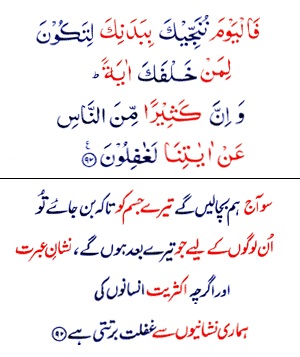 فَالْيَوْمَ نُنَجِّيْكَ بِبَدَنِكَ لِتَكُوْنَ
لِمَنْ خَلْفَكَ اٰيَةً ؕ
وَ اِنَّ كَثِيْرًا مِّنَ النَّاسِ
عَنْ اٰيٰتِنَا لَغٰفِلُوْنَ ﴿۹۲﴾
سو آج ہم بچالیں گے تیرے جسم کو تاکہ بن جائے تُو
اُن لوگوں کے لیے جو تیرے بعد ہوں گے، نشانِ عبرت
اور اگرچہ اکثریت انسانوں کی
ہماری نشانیوں سے غفلت برتتی ہے ﴿۹۲﴾